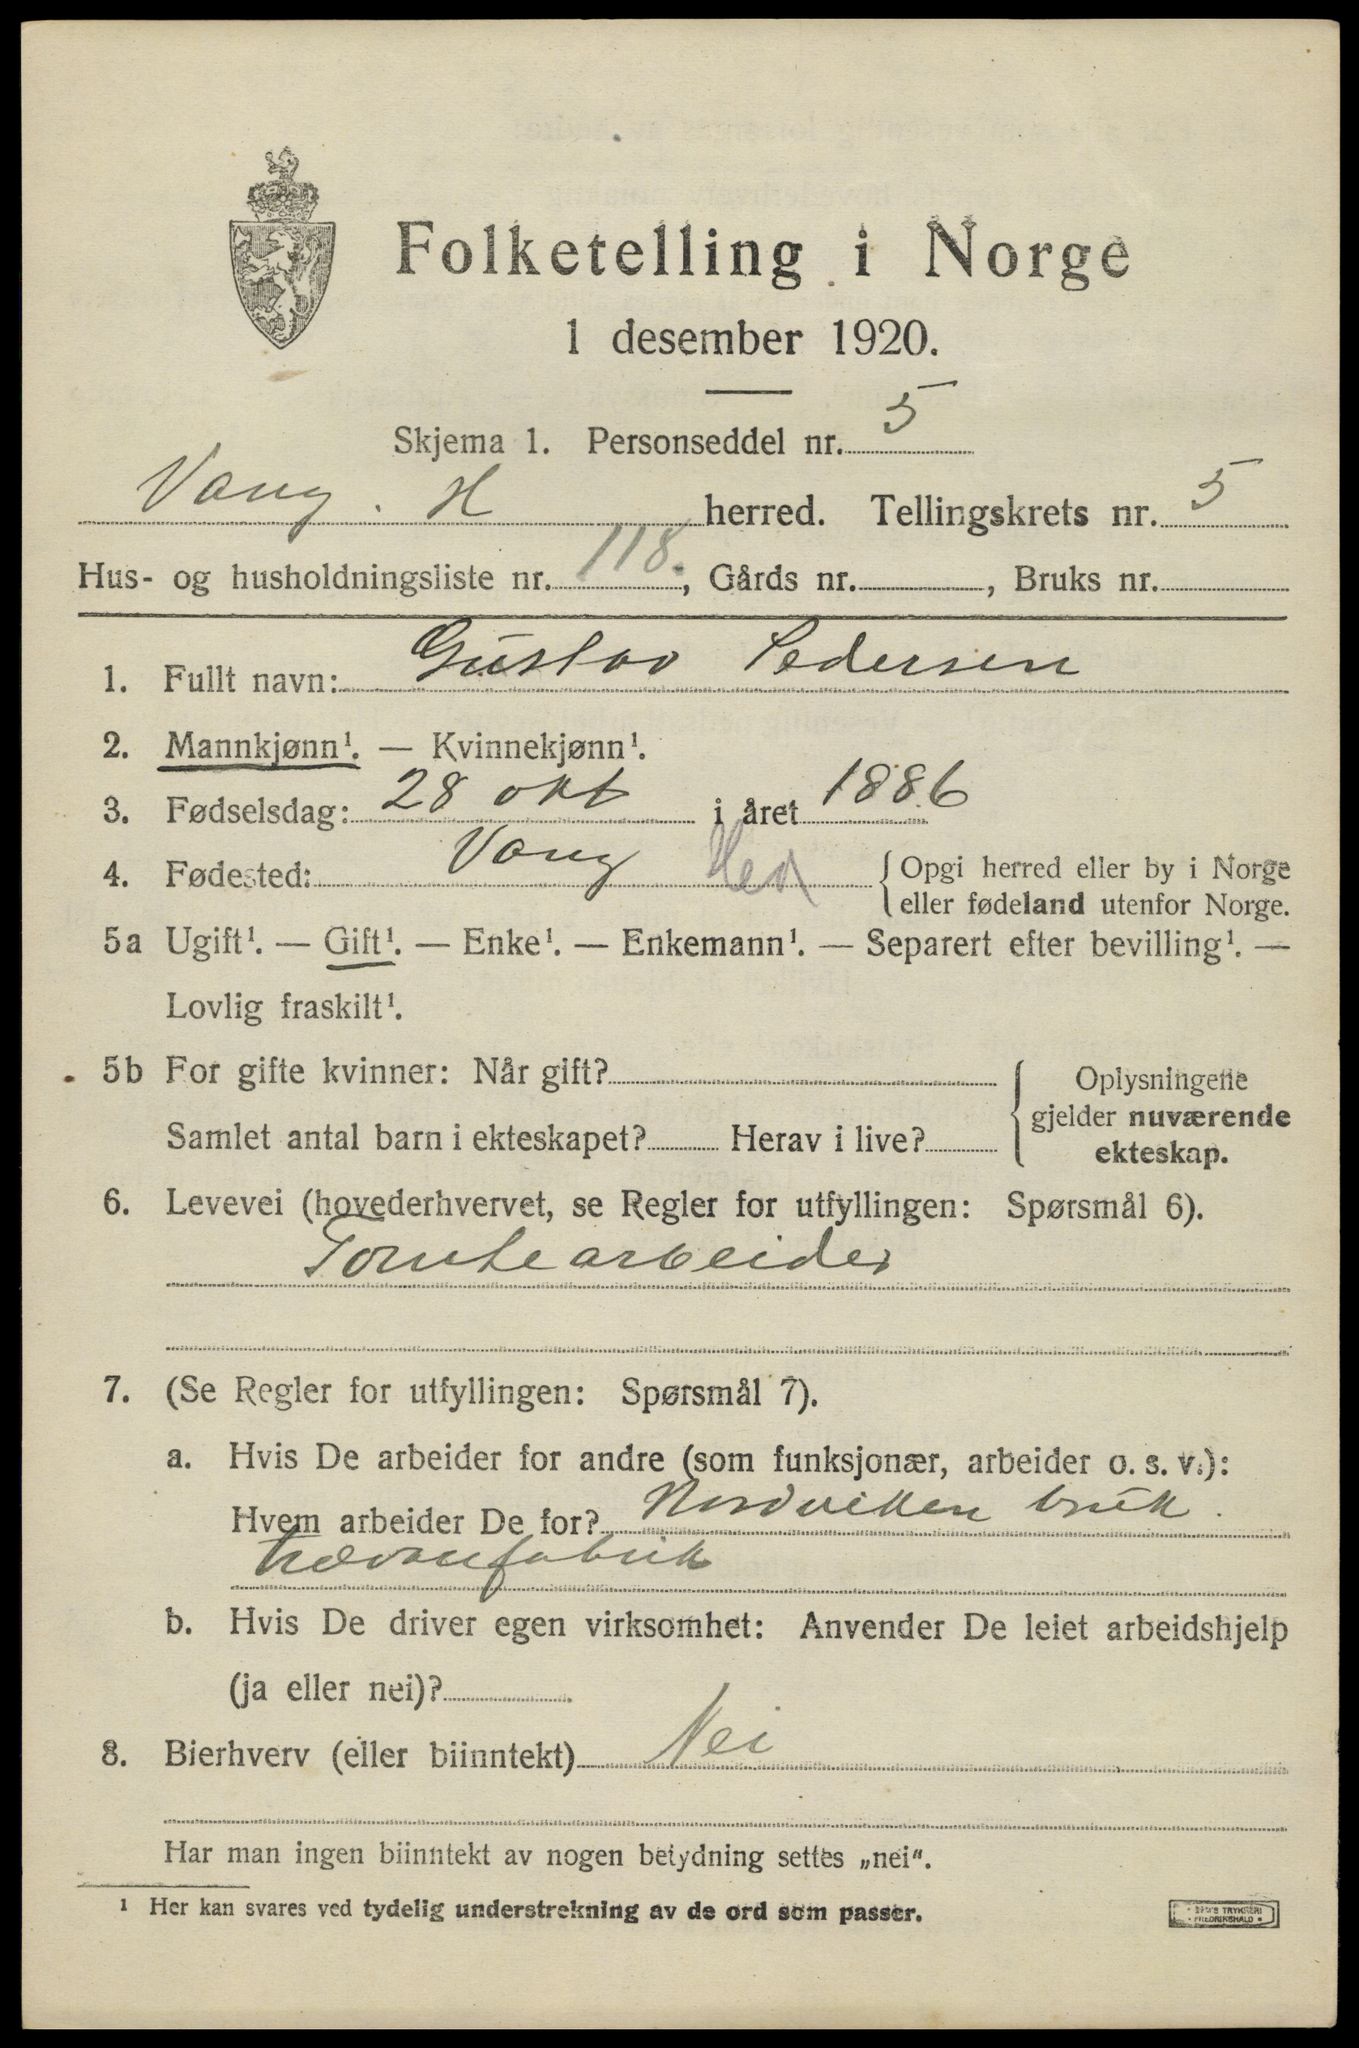 Folketelling i Norge
1 desember 1920.
Skjema 1. Personseddel nr. 5
Vang. H herred. Tellingskrets nr. 5
Hus- og husholdningsliste nr. 118., Gårds nr. , Bruks nr.
1. Fullt navn: Gustav Pedersen
2. Mannkjønn¹. — Kvinnekjønn¹.
3. Fødselsdag: 28 okt i året 1886
4. Fødested: Vang Hed { Opgi herred eller by i Norge
eller fødeland utenfor Norge.
5a Ugift¹. — Gift¹. — Enke¹. — Enkemann¹. — Separert efter bevilling¹. —
Lovlig fraskilt¹.
5b For gifte kvinner: Når gift? { Oplysningene
gjelder nuværende
Samlet antal barn i ekteskapet? Herav i live?
ekteskap.
6. Levevei (hovederhvervet, se Regler for utfyllingen: Spørsmål 6).
Tomtearbeider
7. (Se Regler for utfyllingen: Spørsmål 7).
a. Hvis De arbeider for andre (som funksjonær, arbeider o. s. v.):
Hvem arbeider De for? Nordviken bruk.
trævarefabrik
b. Hvis De driver egen virksomhet: Anvender De leiet arbeidshjelp
(ja eller nei)?
8. Bierhverv (eller biinntekt) Nei
Har man ingen biinntekt av nogen betydning settes „nei“.
¹ Her kan svares ved tydelig understrekning av de ord som passer.
TRYKKERI
FREDRIKSHALD